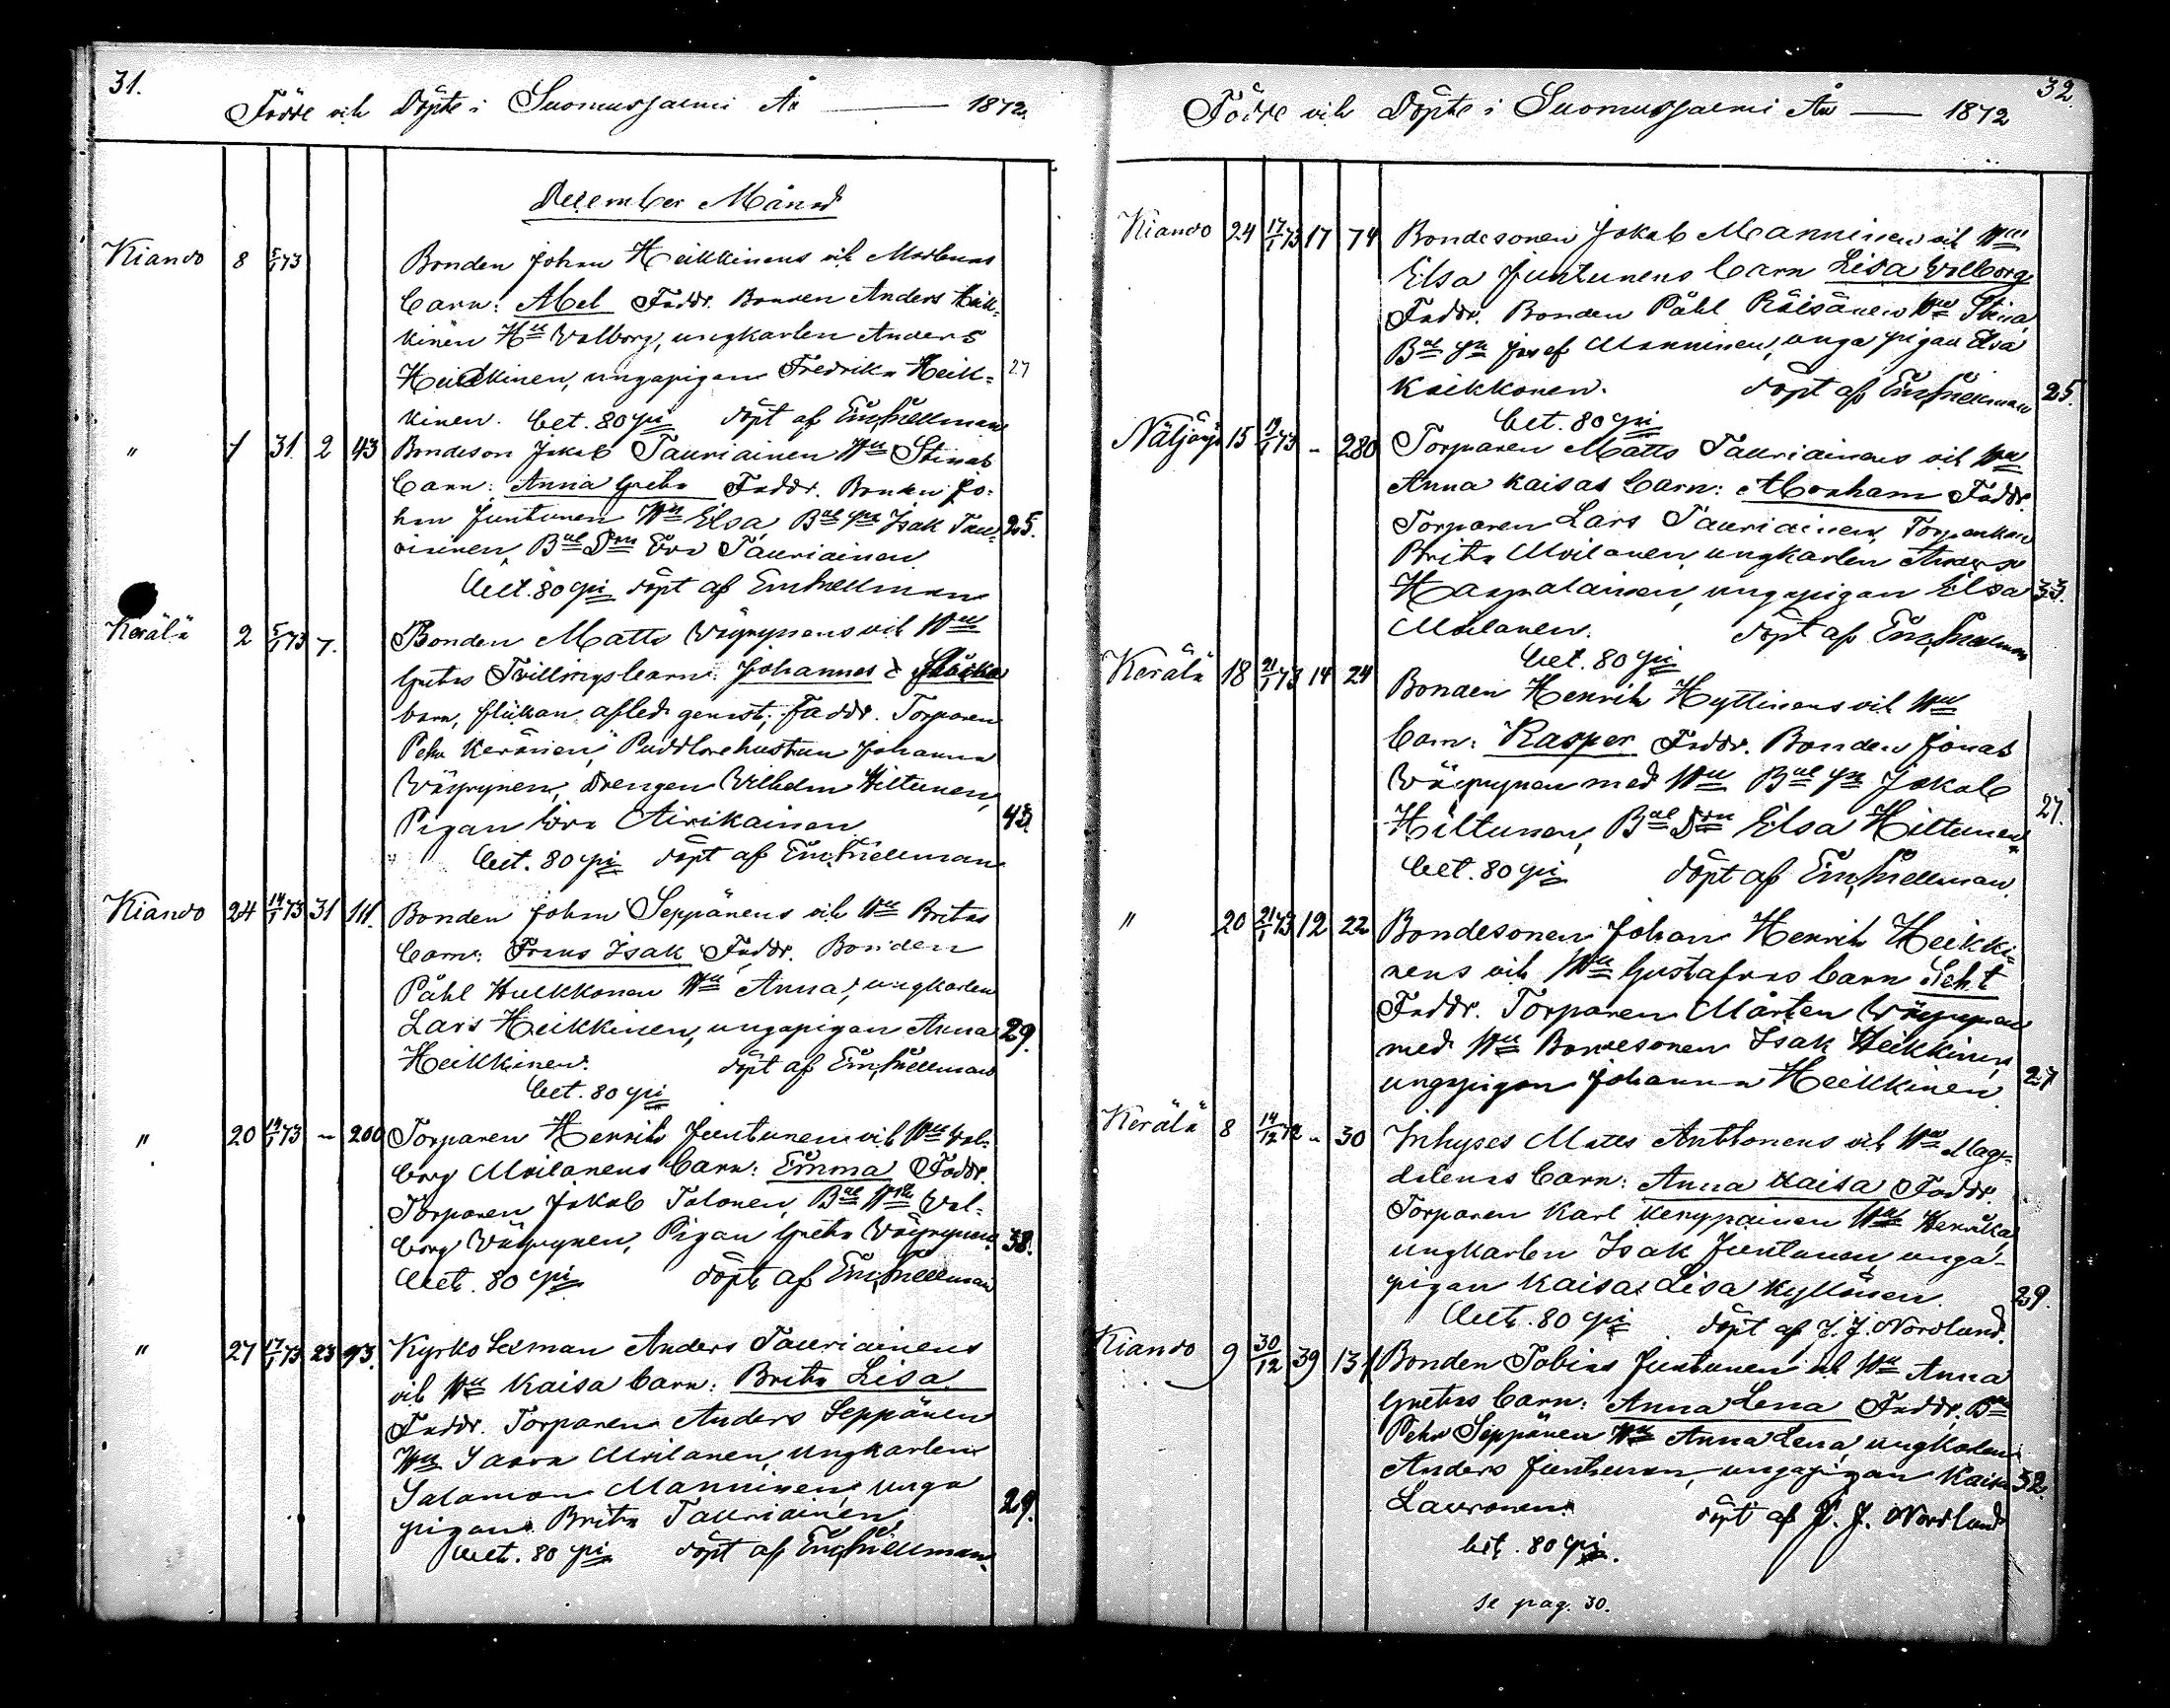 31.
Födde och Döpte i Suomussalmi År — 1872.
December Månad
Kiando 8 5/1 73 Bonden Johan Heikkinens och
barn: Abel Faddr. Bonden Anders Heik-
kinen Hu Walborg, ungkarlen Anders
Heikkinen, ungapigan Fredrika Heik= 27
kinen. bet. 80 pi döpt af Em. Snellman
" 1 31 2 43 Bondeson Jakob Tauriainen Hu Stinas
barn: Anna Greta Faddr. Bonden Jo-
han Juntunen Hu Elsa, Bde Sn Isak Tau- 25.
riainen, Bde Drn Eva Tauriainen
bet. 80 pi döpt af Em Snellman
Kerälä 2 5/1 73 7. Bonden Matts Väyrynens och Hus
Gretas Tvillingsbarn: Johannes &
barn, flickan afled genast; Faddr. Torparen
Pehr Keränen, Johanna
Väyrynen, Drengen Vilhelm Hiltunen,
Pigan Eva Airikainen 43
bet. 80 pi döpt af Em. Snellman
Kiando 24 14/1 73 31 111. Bonden Johan Seppänens och Hu Britas
barn: Frans Isak Faddr. Bonden
Påhl Hulkkonen Hu Anna, ungkarlen
Lars Heikkinen, ungapigan Anna 29.
Heikkinen. döpt af Em. Snellman
bet. 80 pi
" 20 14/1 73 - 200 Torparen Henrik Juntunen och Hu Val-
borg Moilanens barn: Emma Faddr.
Torparen Jakob Talonen, Bde Hu Val-
borg Väyrynen, Pigan Greta Väyrynen. 38.
bet. 80 pi döpt af Em. Snellman
" 27 17/1 73 23 93. Kyrko Sexman Anders Tauriainens
och Hu Kaisa barn: Brita Lisa
Faddr. Torparen Anders Seppänen
Hu Saara Moilanen, ungkarlen
Salomon Manninen, unga 29.
pigan Brita Tauriainen
bet. 80 pi döpt af Em. Snellman.
32.
Födde och Döpte i Suomussalmi År — 1872
Kiando 24 17/1 73 17 74 Bondesonen Jakob Manninen och Hu
Elsa Juntunens barn Lisa Walborg
Faddr. Bonden Påhl Räisänen Hu Stina,
Bde Sn Josef Manninen, unga pigan Elsa
Keikkonen. döpt af Em. Snellman 25.
bet. 80 pi
Näljängä 15 19/1 73 - 280 Torparen Matts Tauriainens och Hu
Anna Kaisas barn: Abraham Faddr.
Torparen Lars Tauriainen, Torpenkan
Brita Moilanen, ungkarlen Anders
Haapalainen, ungapigan Elsa 33.
Moilanen. döpt af Em. Snellman
bet. 80 pi
Kerälä 18 21/1 73 14 24 Bonden Henrik Hyttinens och Hu
barn: Kasper Faddr. Bonden Jonas
Väyrynen med Hu Bde Sn Jakob 27.
Hiltunen, Bde Drn Elsa Hiltunen
bet. 80 pi döpt af Em. Snellman
" 20 21/1 73 12 22 Bondesonen Johan Henrik Heikki-
nens och Hu Gustafvas barn Seht
Faddr. Torparen Mårten Väyrynen
med Hu Bondesonen Isak Heikkinen,
ungapigan Johanna Heikkinen. 27
Kerälä 8 14/12 72 - 30 Inhyses Matts Anttonens och Hu Mag-
dalenas barn: Anna Kaisa Faddr.
Torparen Karl Kemppainen Hu Henrika,
ungkarlen Isak Juntunen, unga-
pigan Kaisa Lisa Kyllönen. 29.
bet. 80 pi döpt af J. J. Nordlund.
Kiando 9 30/12 39 131 Bonden Tobias Juntunen och Hu Anna
Gretas barn: Anna Lena Faddr. Bn
Pehr Seppänen Hu Anna Lena, ungkarlen
Anders Juntunen, ungapigan Kaisa 32.
Lauronen. döpt af J. J. Nordlund
bet. 80 pi.
se pag. 30.